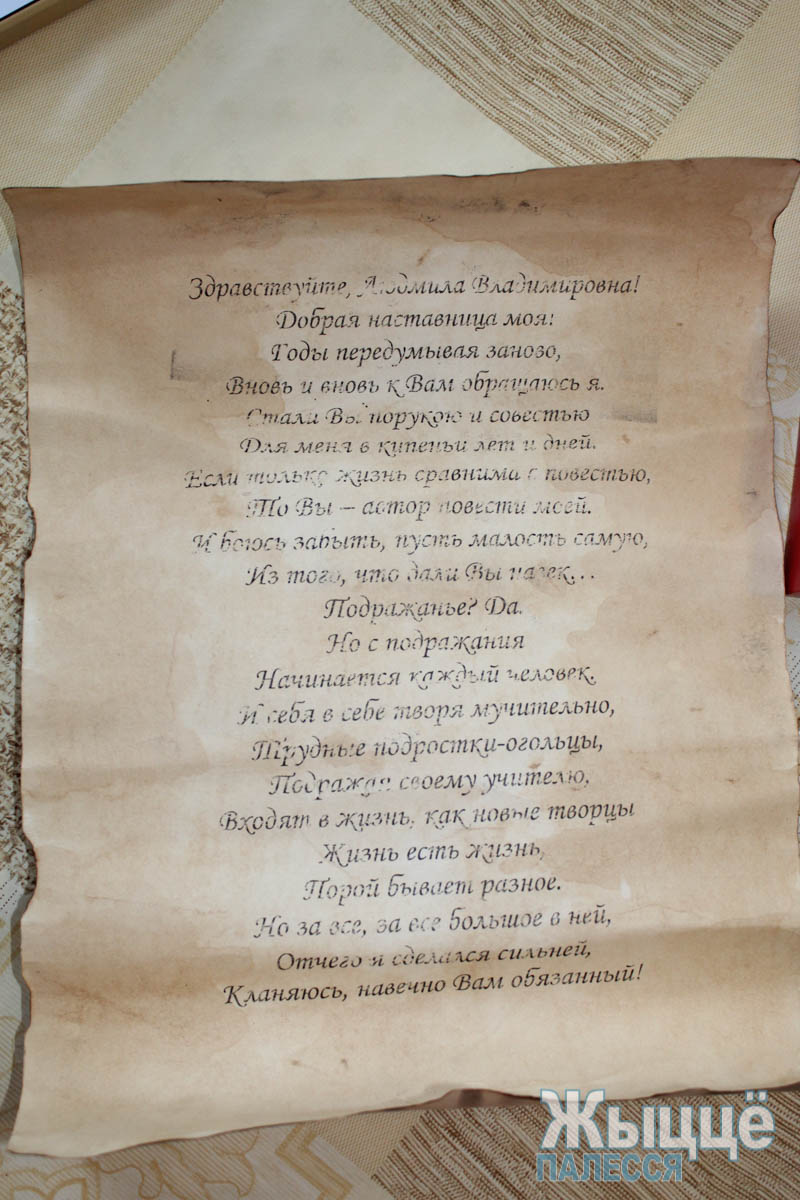 Здравствуйте, Людмила Владимировна!
Добрая наставница моя!
Годы передумывая занозо,
Вновь и вновь к Вам обращаюсь я.
Стали Вы порукою и совестью
Для меня в кипеньи лет и дней.
Если только жизнь сравнима с повестью,
То Вы – автор повести моей.
И боюсь забыть, пусть малость самую,
Из того, что дали Вы навек...
Подражанье? Да.
Но с подражания
Начинается каждый человек.
И себя в себе творя мучительно,
Трудные подростки-огольцы,
Подражая своему учителю,
Входят в жизнь, как новые творцы
Жизнь есть жизнь,
Порой бывает разное.
Но за все, за все большое в ней,
Отчего я сделался сильней,
Кланяюсь, навечно Вам обязанный!
Жыццё
ПАЛЕССЯ